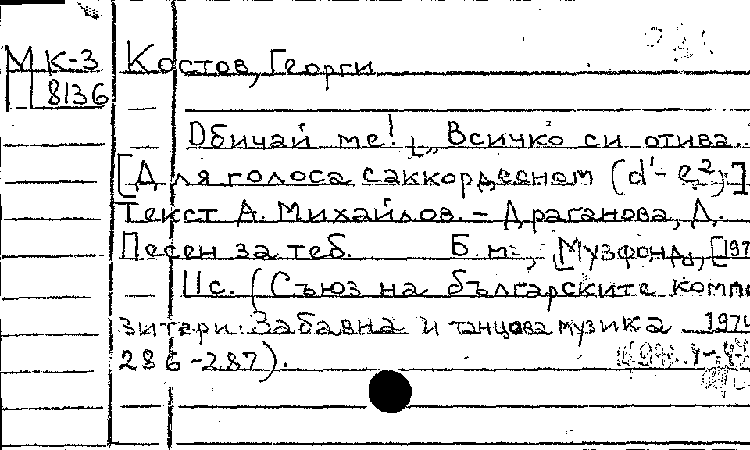 М К-3 Костов, Георги
8136
Обичай ме! „Всичко си отива.
[Для голоса с аккордеоном (d¹- e²).]
Текст А. Михайлов. - Драганова, Д.
Песен за теб. Б.м., [Музфонд], [197
11с. (Съюз на българските компо
зитори. Забавна и танцова музика 1971
286-287).